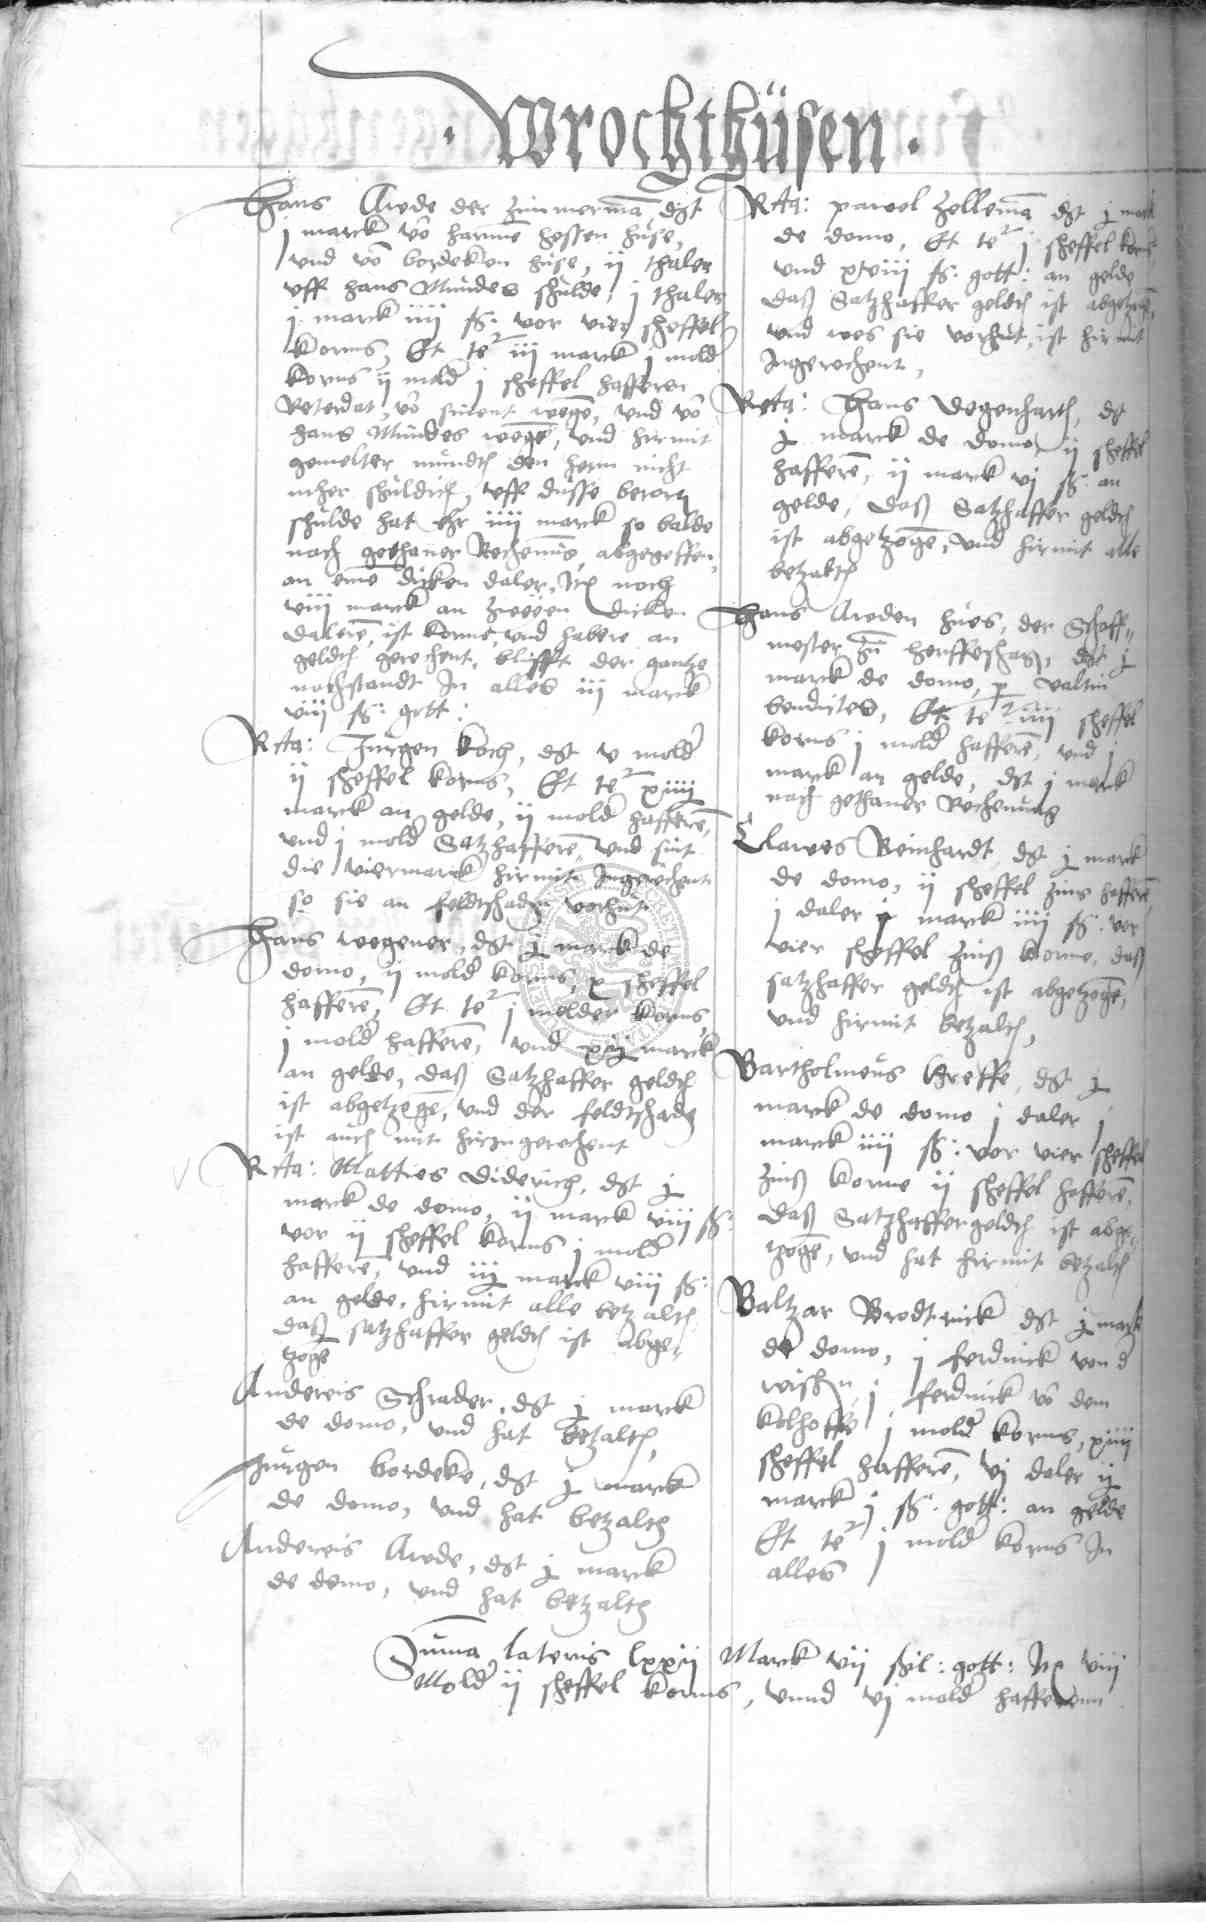 · Wrochthüsen ·
Hans Arede der Zimmermā, dst
j marck vō harmē hessen huse,
vnd vō bordeken huse, ij thaler
vff hans Mundes schulde, j thaler
j marck iiij ß: vor vier scheffel
korns, Et te͞ iij marck j mold
korns ij mold j scheffel hafferen
vō wegē, vnd vō
hans Mundes wegē, vnd hirmit
gemelter den hern nicht
mher schuldich, vff dusse
schulde hat ehr iiij marck so balde
nach gethaner Rechenūg, abgegeffen,
an eme dicken daler, noch
viij marck an zweyen dicken
dalerē, ist korne, vnd habere an
geldt gerechent, blifft der gantze
nachstandt In alles iij marck
viij ß: gott:
Rta: Jurgen Koch, dst v mold
ij scheffel korns, Et te͞ xiiij
marck an gelde, ij mold hafferē,
vnd j mold Satzhafferē, vnd sint
die viermarck hirmit Ingerechent
so sie an feldtschaden vorhut
Hans wegener, dst j marck de
domo, ij mold korns, x scheffel
hafferē, Et te͞ j molder korns,
j mold hafferē, vnd xij marck
an gelde, daß Satzhaffer geldt
ist abgetzogē, vnd der feldtschade
ist auch mit hirzugerechent
Rta: Matties Diderich, dst j
marck de domo, ij marck viij ß:
vor ij scheffel korns j mold
hafferē, vnd iij marck viij ß:
an gelde, hirmit alle betzalt
daß satzhaffer geldt ist abge-
zogē
Andereis Schrader, dst j marck
de domo, vnd hat betzalt,
Jurgen bordeke, dst j marck
de domo, vnd hat betzalt
Andereis Arede, dst j marck
de domo, vnd hat betzalt
Rta: pawel Zellemā dst j marck
de domo, Et te͞ j scheffel korns,
vnd xviij ß: gott: an gelde
daß Satzhaffer geldt ist abgetzogē,
vnd wes sie vorhut, ist hirmit
Ingerechent,
Rta: Hans Degenhart, dst
j marck de domo ij scheffel
hafferē, ij marck vj ß: an
gelde, daß Satzhaffer geldt
ist abgetzogē, vnd hirmit alle
betzalt
Hans Areden hues, der Schaff-
mester zū, dst j
marck de domo, valtin
bendictes, Et te͞ iiij scheffel
korns j mold hafferē, vnd j
marck an gelde, dst j marck
nach gethaner Rechenūg
Clawes Reinhardt dst j marck
de domo, ij scheffel zins hafferē,
j daler j marck iiij ß: vor
vier scheffel zinß korne, daß
satzhaffer geldt ist abgetzogē,
vnd hirmit betzalt,
Bartholmeus Greffe, dst j
marck de domo j daler j
marck iiij ß: vor vier scheffel
zinß korne ij scheffel hafferē,
daß Satzhaffergeldt ist abge-
tzogē, vnd hat hirmit betzalt
Baltzar Brodtrück dst j marck
de domo, j ferdinck von d
wischen, j ferdinck vō dem
kolhoffe j mold korns, xiiij
scheffel hafferē, vj daler ij
marck j ß: gott: an gelde
Et te͞ j mold korns In
alles
Suma lateris lxxij Marck vij ßil: gott: viij
Mold ij scheffel korns, vnnd vj mold hafferenn